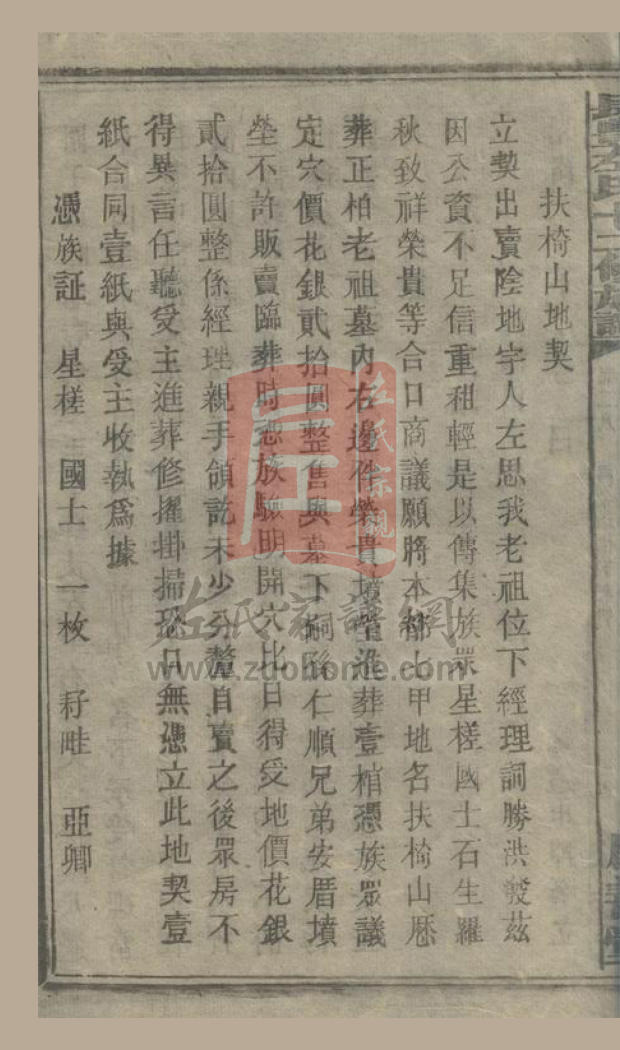 扶椅山地契
立契出賣陰地字人左思我老祖位下經理詞勝洪發茲
因公資不足信重租輕是以傳集族眾星槎國士石生羅
秋致祥榮貴等合口商議願將本都山甲地名扶椅山厝
葬正柏老祖墓內右邊伴榮貴墳塋進葬壹棺憑族眾議
定穴價花銀貳拾圓整售與墓下嗣孫仁順兄弟安厝墳
塋不許販賣臨葬時憑族驗明開穴比日得受地價花銀
貳拾圓整係經理親手領訖未少分釐自賣之後眾房不
得異言任聽受主進葬修擢掛掃恐口無憑立此地契壹
紙合同壹紙與受主收執爲據
憑族証 星槎 國士 一枚 耔畦 亞卿
左氏宗親
左氏家譜網
www.zuohome.com